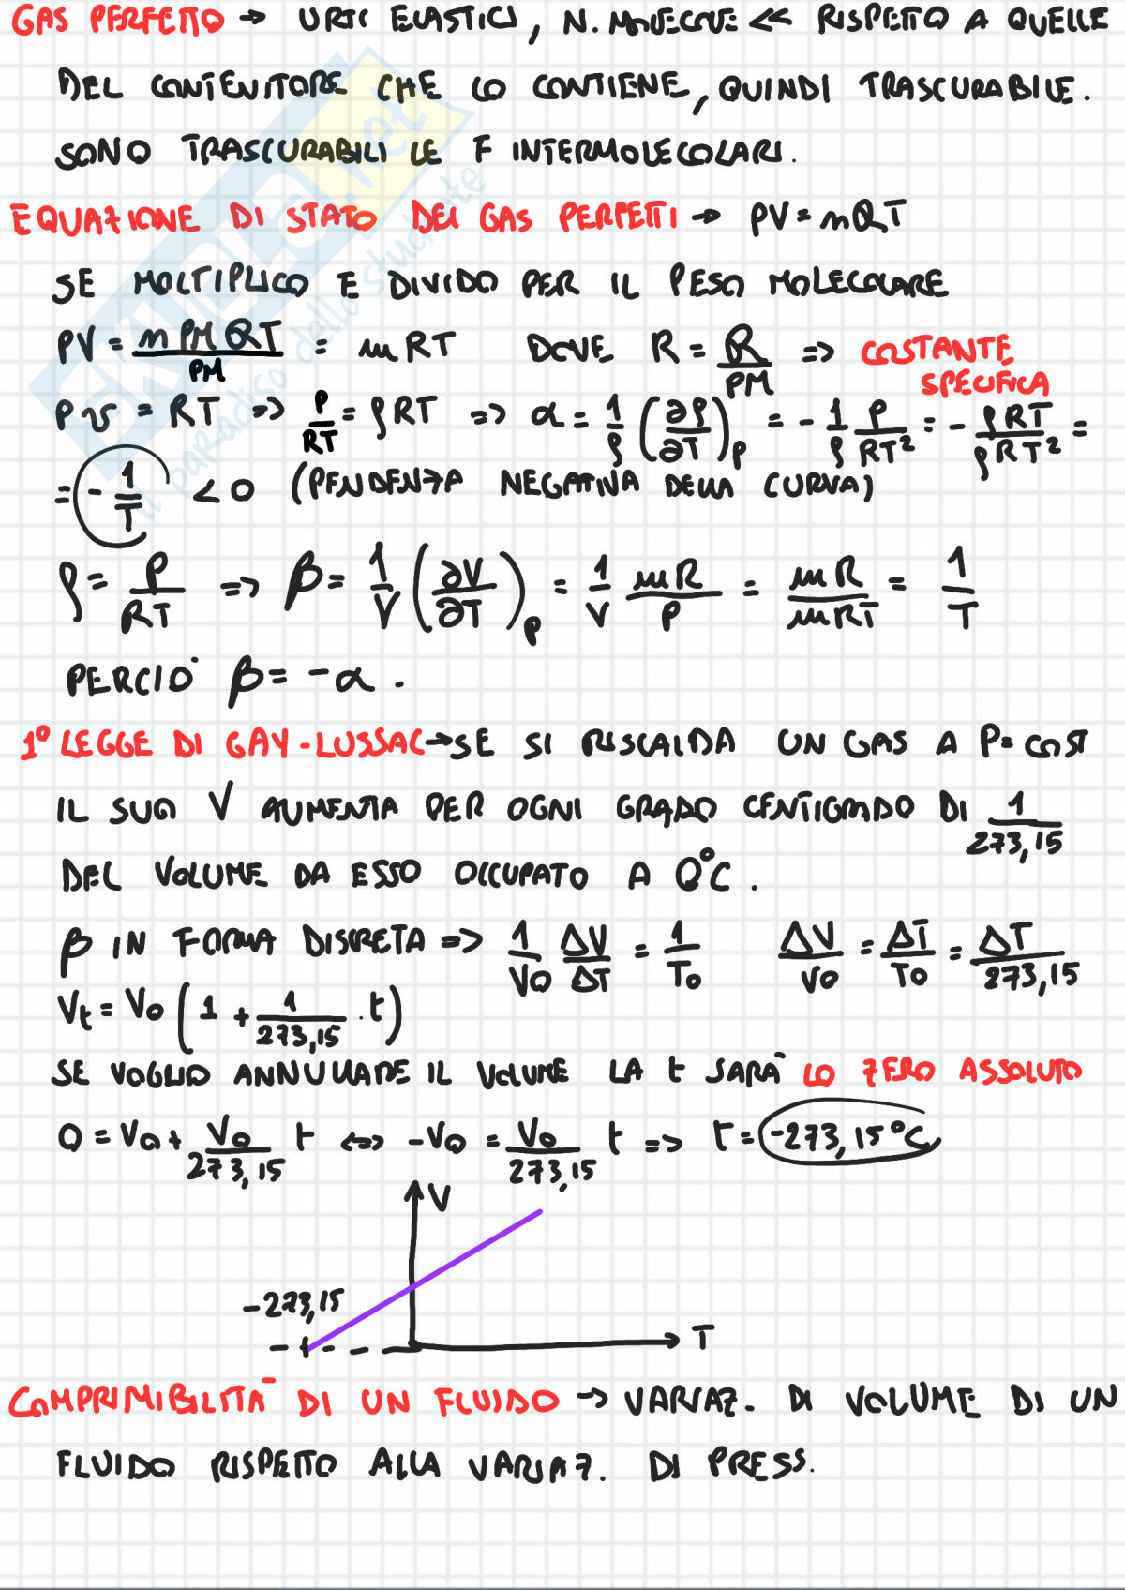 GAS PERFETTO → URTI ELASTICI, N. MOLECOLE << RISPETTO A QUELLE
DEL CONTENITORE CHE LO CONTIENE, QUINDI TRASCURABILE.
SONO TRASCURABILI LE F INTERMOLECOLARI.
EQUAZIONE DI STATO DEI GAS PERFETTI → PV = nRT
SE MOLTIPLICO E DIVIDO PER IL PESO MOLECOLARE
PV = n PM RT / PM = m RT DOVE R = R / PM => COSTANTE SPECIFICA
Pv = RT => P/RT = ρRT => α = 1/ρ (∂ρ/∂T)p = - 1/ρ P/RT² = - ρRT/ρRT² =
= - 1/T < 0 (PENDENZA NEGATIVA DELLA CURVA)
ρ = P/RT => β = 1/V (∂V/∂T)p = 1/V mR/P = mR/mRT = 1/T
PERCIÒ β = -α .
1° LEGGE DI GAY-LUSSAC → SE SI RISCALDA UN GAS A P = COST
IL SUO V AUMENTA PER OGNI GRADO CENTIGRADO DI 1/273,15
DEL VOLUME DA ESSO OCCUPATO A 0°C .
β IN FORMA DISCRETA => 1/V0 ΔV/ΔT = 1/T0 ΔV/V0 = ΔT/T0 = ΔT/273,15
Vt = V0 (1 + 1/273,15 . t)
SE VOGLIO ANNULLARE IL VOLUME LA t SARÀ LO ZERO ASSOLUTO
0 = V0 + V0/273,15 t <=> -V0 = V0/273,15 t => t = -273,15°C
V
-273,15
T
COMPRIMIBILITÀ DI UN FLUIDO → VARIAZ. DI VOLUME DI UN
FLUIDO RISPETTO ALLA VARIAZ. DI PRESS.
SKUOLA.net
il paradiso dello studente